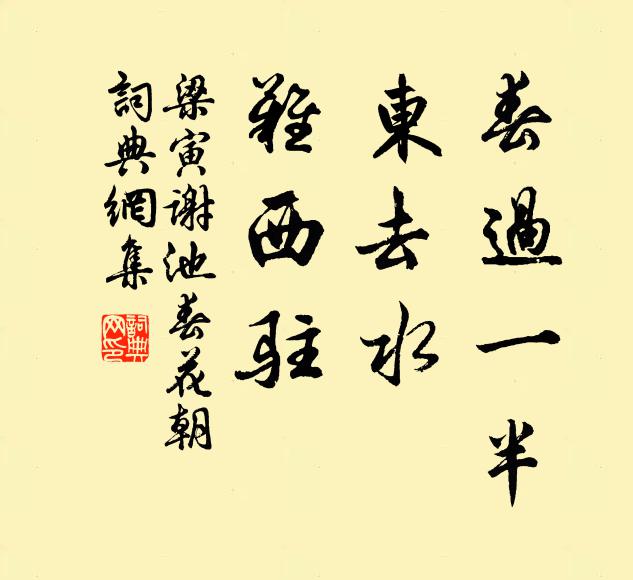 春過一半
東去水
難西駐
梁寅謝池春花朝
詞典網集
詞典网印